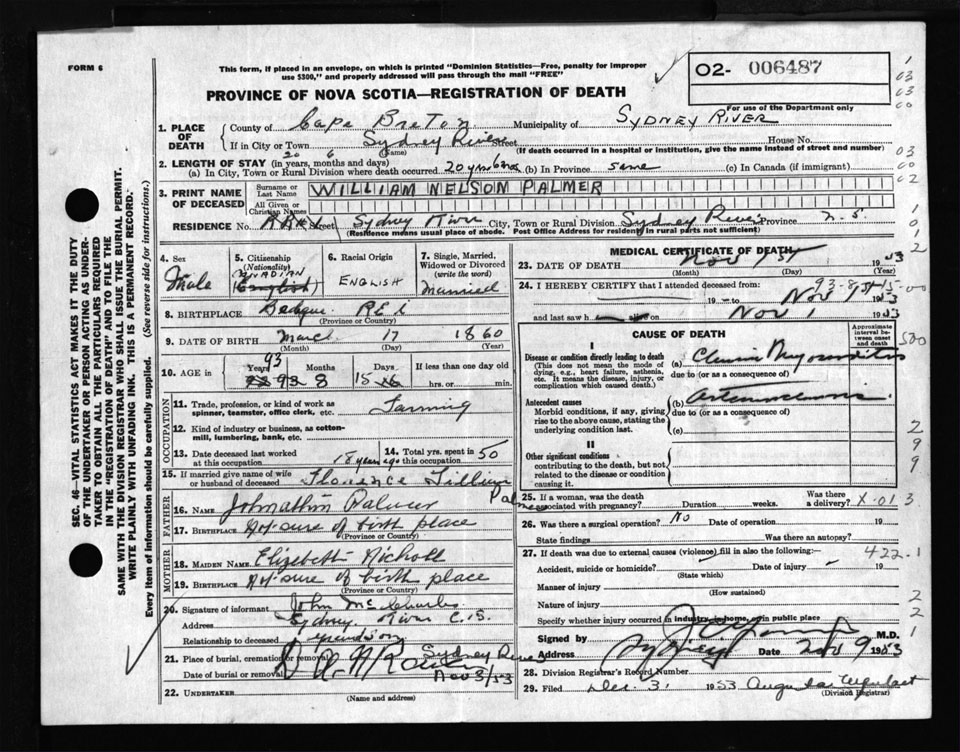 FORM 6
This form, if placed in an envelope, on which is printed "Dominion Statistics—Free, penalty for improper
use $300," and properly addressed will pass through the mail "FREE"
02- 006487
For use of the Department only
PROVINCE OF NOVA SCOTIA—REGISTRATION OF DEATH
1. PLACE OF DEATH
County of Cape Breton Municipality of SYDNEY RIVER
If in City or Town Sydney River Street House No.
(Name) (If death occurred in a hospital or institution, give the name instead of street and number)
2. LENGTH OF STAY (in years, months and days)
20 6
(a) In City, Town or Rural Division where death occurred 20 yrs 6 mos (b) In Province same (c) In Canada (if immigrant)
3. PRINT NAME OF DECEASED
Surname or Last Name WILLIAM NELSON PALMER
All Given or Christian Names
RESIDENCE No. RR#1 Street Sydney River City, Town or Rural Division Sydney River Province N.S.
(Residence means usual place of abode. Post Office Address for residence in rural parts not sufficient)
4. Sex
Male
5. Citizenship
(Nationality)
CANADIAN
English
6. Racial Origin
ENGLISH
7. Single, Married, Widowed or Divorced
(write the word)
Married
8. BIRTHPLACE Bedeque P.E.I
(Province or Country)
9. DATE OF BIRTH March 17 1860
(Month) (Day) (Year)
10. AGE in
Years 93
Months 8
Days 15
If less than one day old
hrs. or min.
OCCUPATION
11. Trade, profession, or kind of work as
spinner, teamster, office clerk, etc. Farming
12. Kind of industry or business, as cotton-
mill, lumbering, bank, etc.
13. Date deceased last worked
at this occupation 18 years ago
14. Total yrs. spent in
this occupation 50
15. If married give name of wife
or husband of deceased Florence Lillian Palmer
FATHER
16. NAME Johnathin Palmer
17. BIRTHPLACE Not sure of birth place
(Province or Country)
MOTHER
18. MAIDEN NAME Elizabeth Nicholl
19. BIRTHPLACE Not sure of birth place
(Province or Country)
20. Signature of informant John Mc
Address Sydney River C.B.
Relationship to deceased grandson
21. Place of burial, cremation or removal Sydney River
Date of burial or removal Nov 3/53
22. UNDERTAKER
(Name and address)
MEDICAL CERTIFICATE OF DEATH
23. DATE OF DEATH Nov 1st 1953
(Month) (Day) (Year)
24. I HEREBY CERTIFY that I attended deceased from:
19 to Nov 1st 1953
and last saw h alive on Nov 1 1953
CAUSE OF DEATH
Approximate interval between onset and death
I
Disease or condition directly leading to death
(This does not mean the mode of
dying, e.g., heart failure, asthenia,
etc. It means the disease, injury, or
complication which caused death.)
(a) Chronic Myocarditis
due to (or as a consequence of)
Antecedent causes
Morbid conditions, if any, giving
rise to the above cause, stating the
underlying condition last.
(b)
due to (or as a consequence of)
(c)
II
Other significant conditions
contributing to the death, but not
related to the disease or condition
causing it.
25. If a woman, was the death
associated with pregnancy? Duration weeks. Was there a delivery? X-013
26. Was there a surgical operation? No Date of operation 19
State findings Was there an autopsy?
27. If death was due to external causes (violence) fill in also the following:—
422.1
Accident, suicide or homicide? Date of injury 19
(State which)
Manner of injury
(How sustained)
Nature of injury
Specify whether injury occurred in industry, in home, or in public place
Signed by M.D.
Address Sydney Date Nov 9 1953
28. Division Registrar's Record Number
29. Filed Dec. 31 1953
(Division Registrar)
SEC. 46—VITAL STATISTICS ACT MAKES IT THE DUTY
OF THE UNDERTAKER OR PERSON ACTING AS UNDER-
TAKER TO OBTAIN ALL THE PARTICULARS REQUIRED
IN THE "REGISTRATION OF DEATH" AND TO FILE THE
SAME WITH THE DIVISION REGISTRAR WHO SHALL ISSUE THE BURIAL PERMIT.
WRITE PLAINLY WITH UNFADING INK. THIS IS A PERMANENT RECORD.
Every item of information should be carefully supplied. (See reverse side for instructions.)